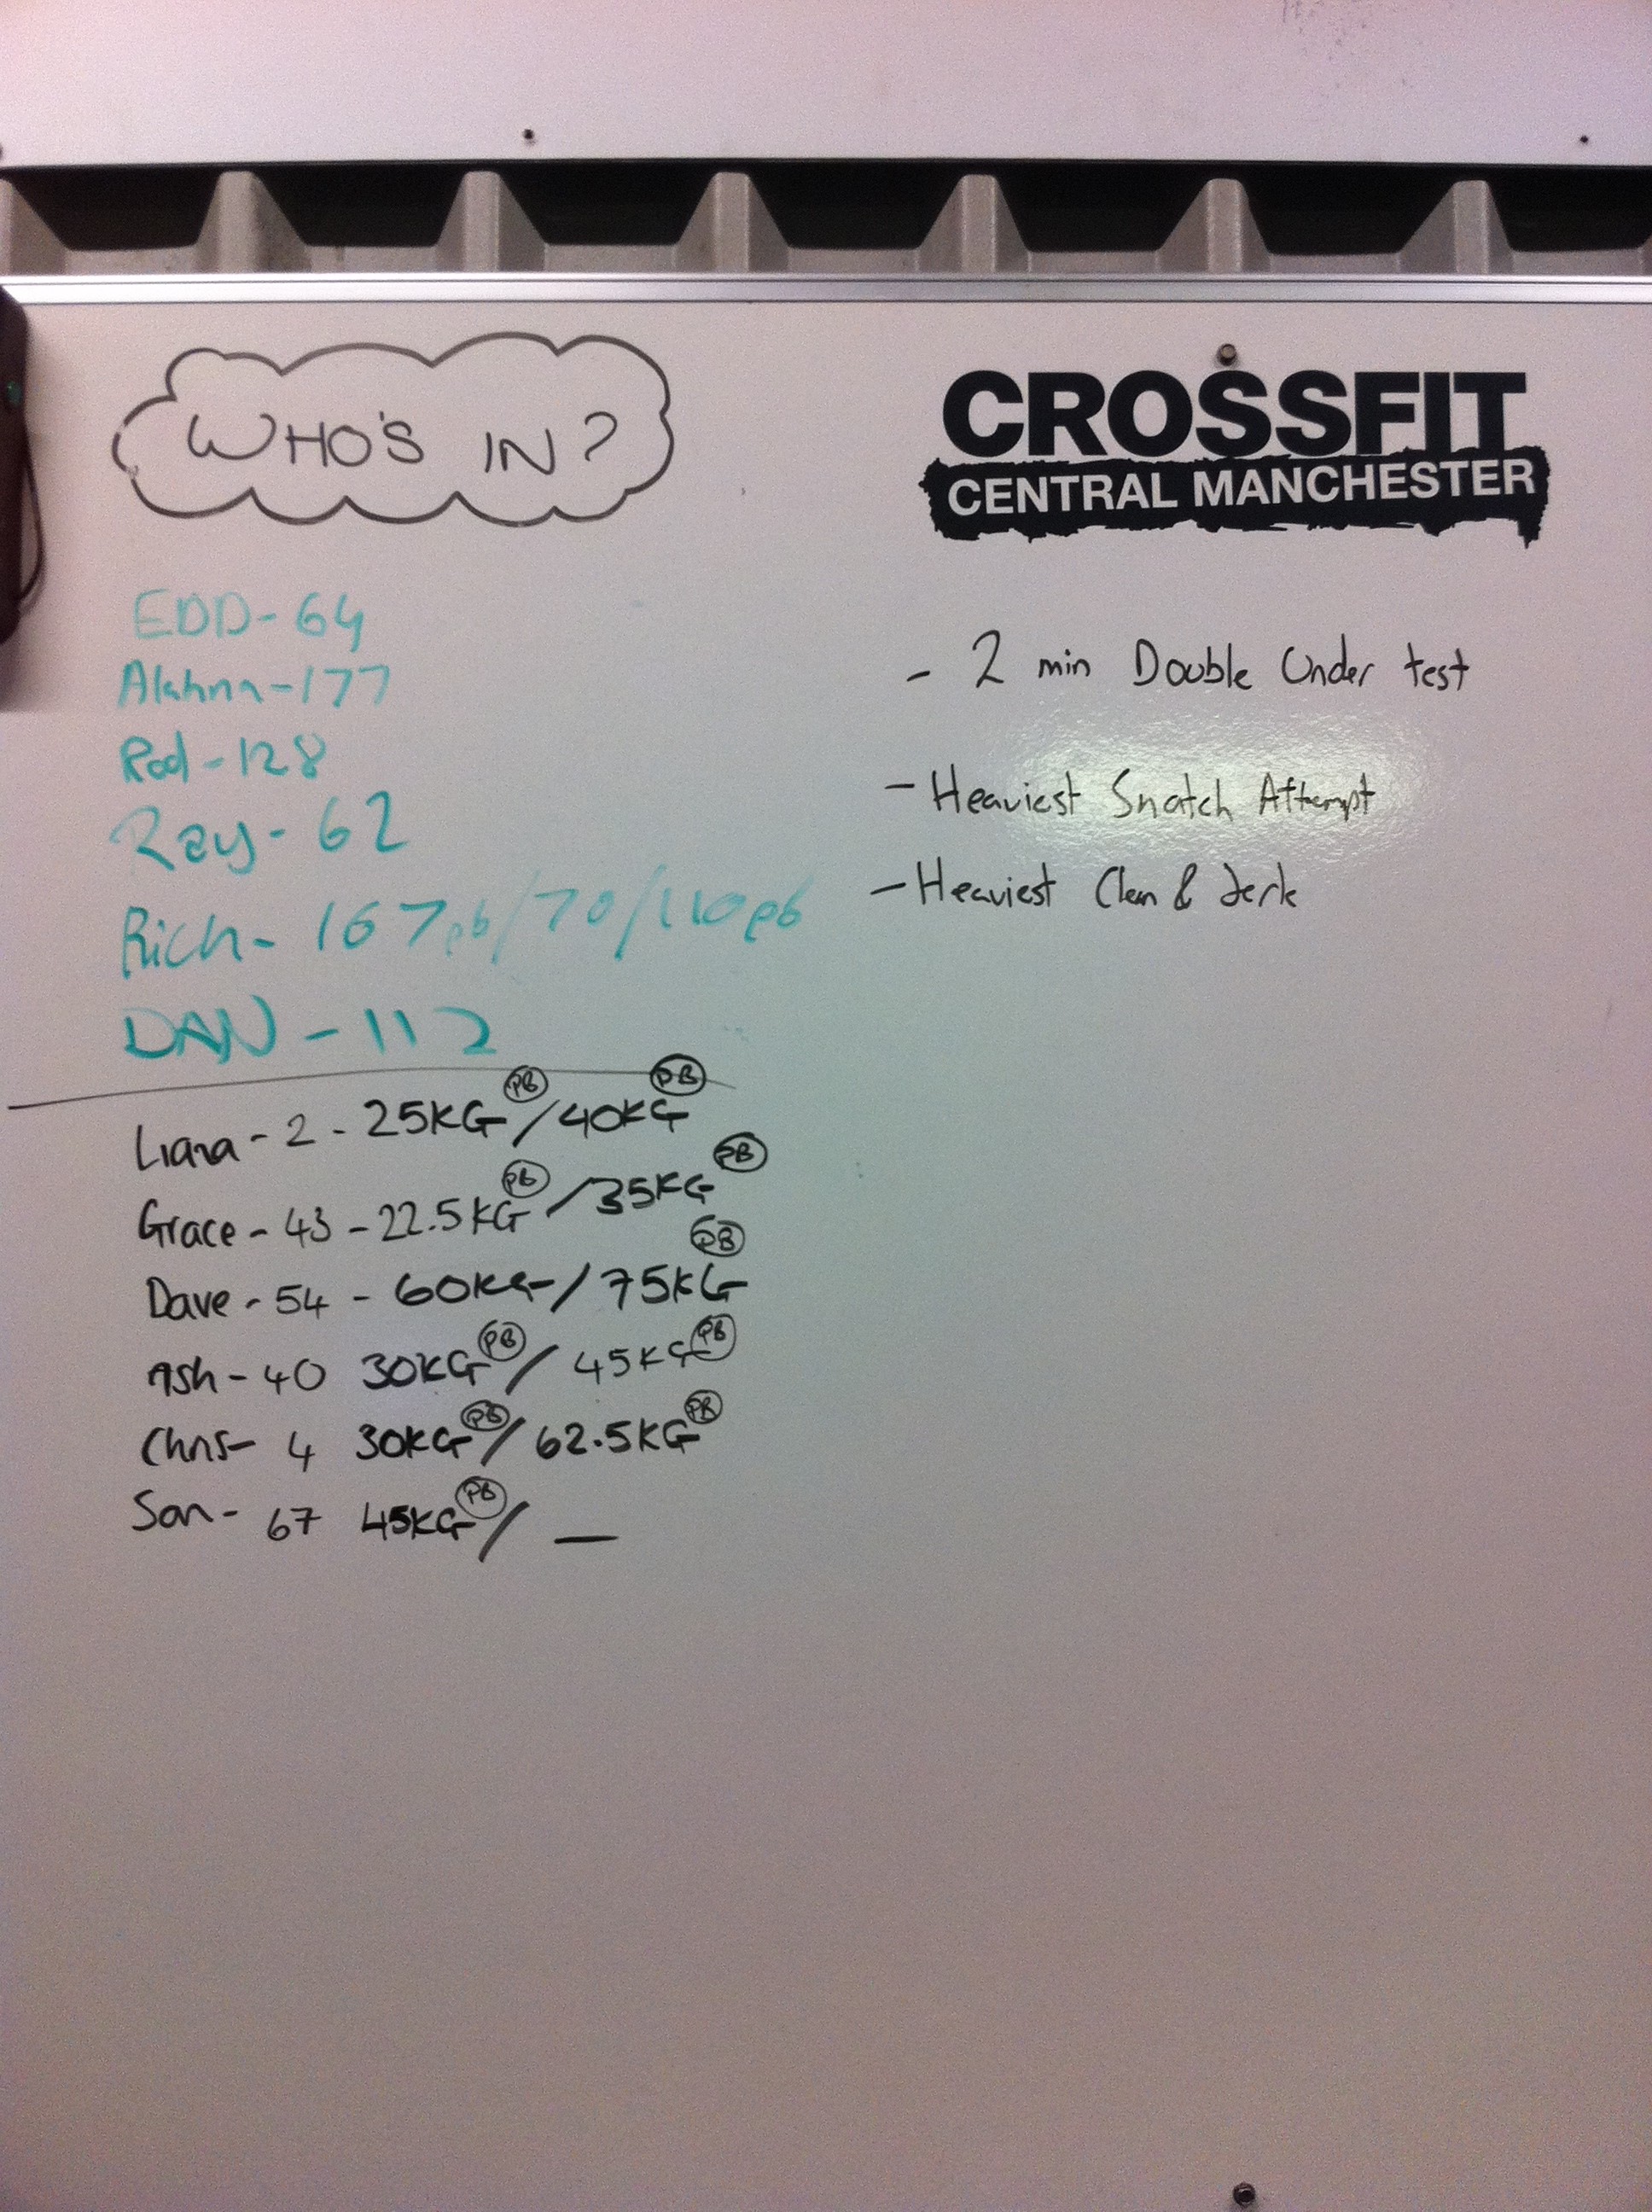 WHO'S IN?
CROSSFIT
CENTRAL MANCHESTER
EDD - 64
- 177
Rod - 128
Ray - 62
Rich - 167pb/70/110pb
DAN - 112
Liana - 2 - 25KG PB / 40KG PB
Grace - 43 - 22.5KG PB / 35KG PB
Dave - 54 - 60KG / 75KG PB
Ash - 40 30KG PB / 45KG PB
Chris - 4 30KG PB / 62.5KG PB
San - 67 45KG PB / —
- 2 min Double Under test
- Heaviest Snatch Attempt
- Heaviest Clean & Jerk